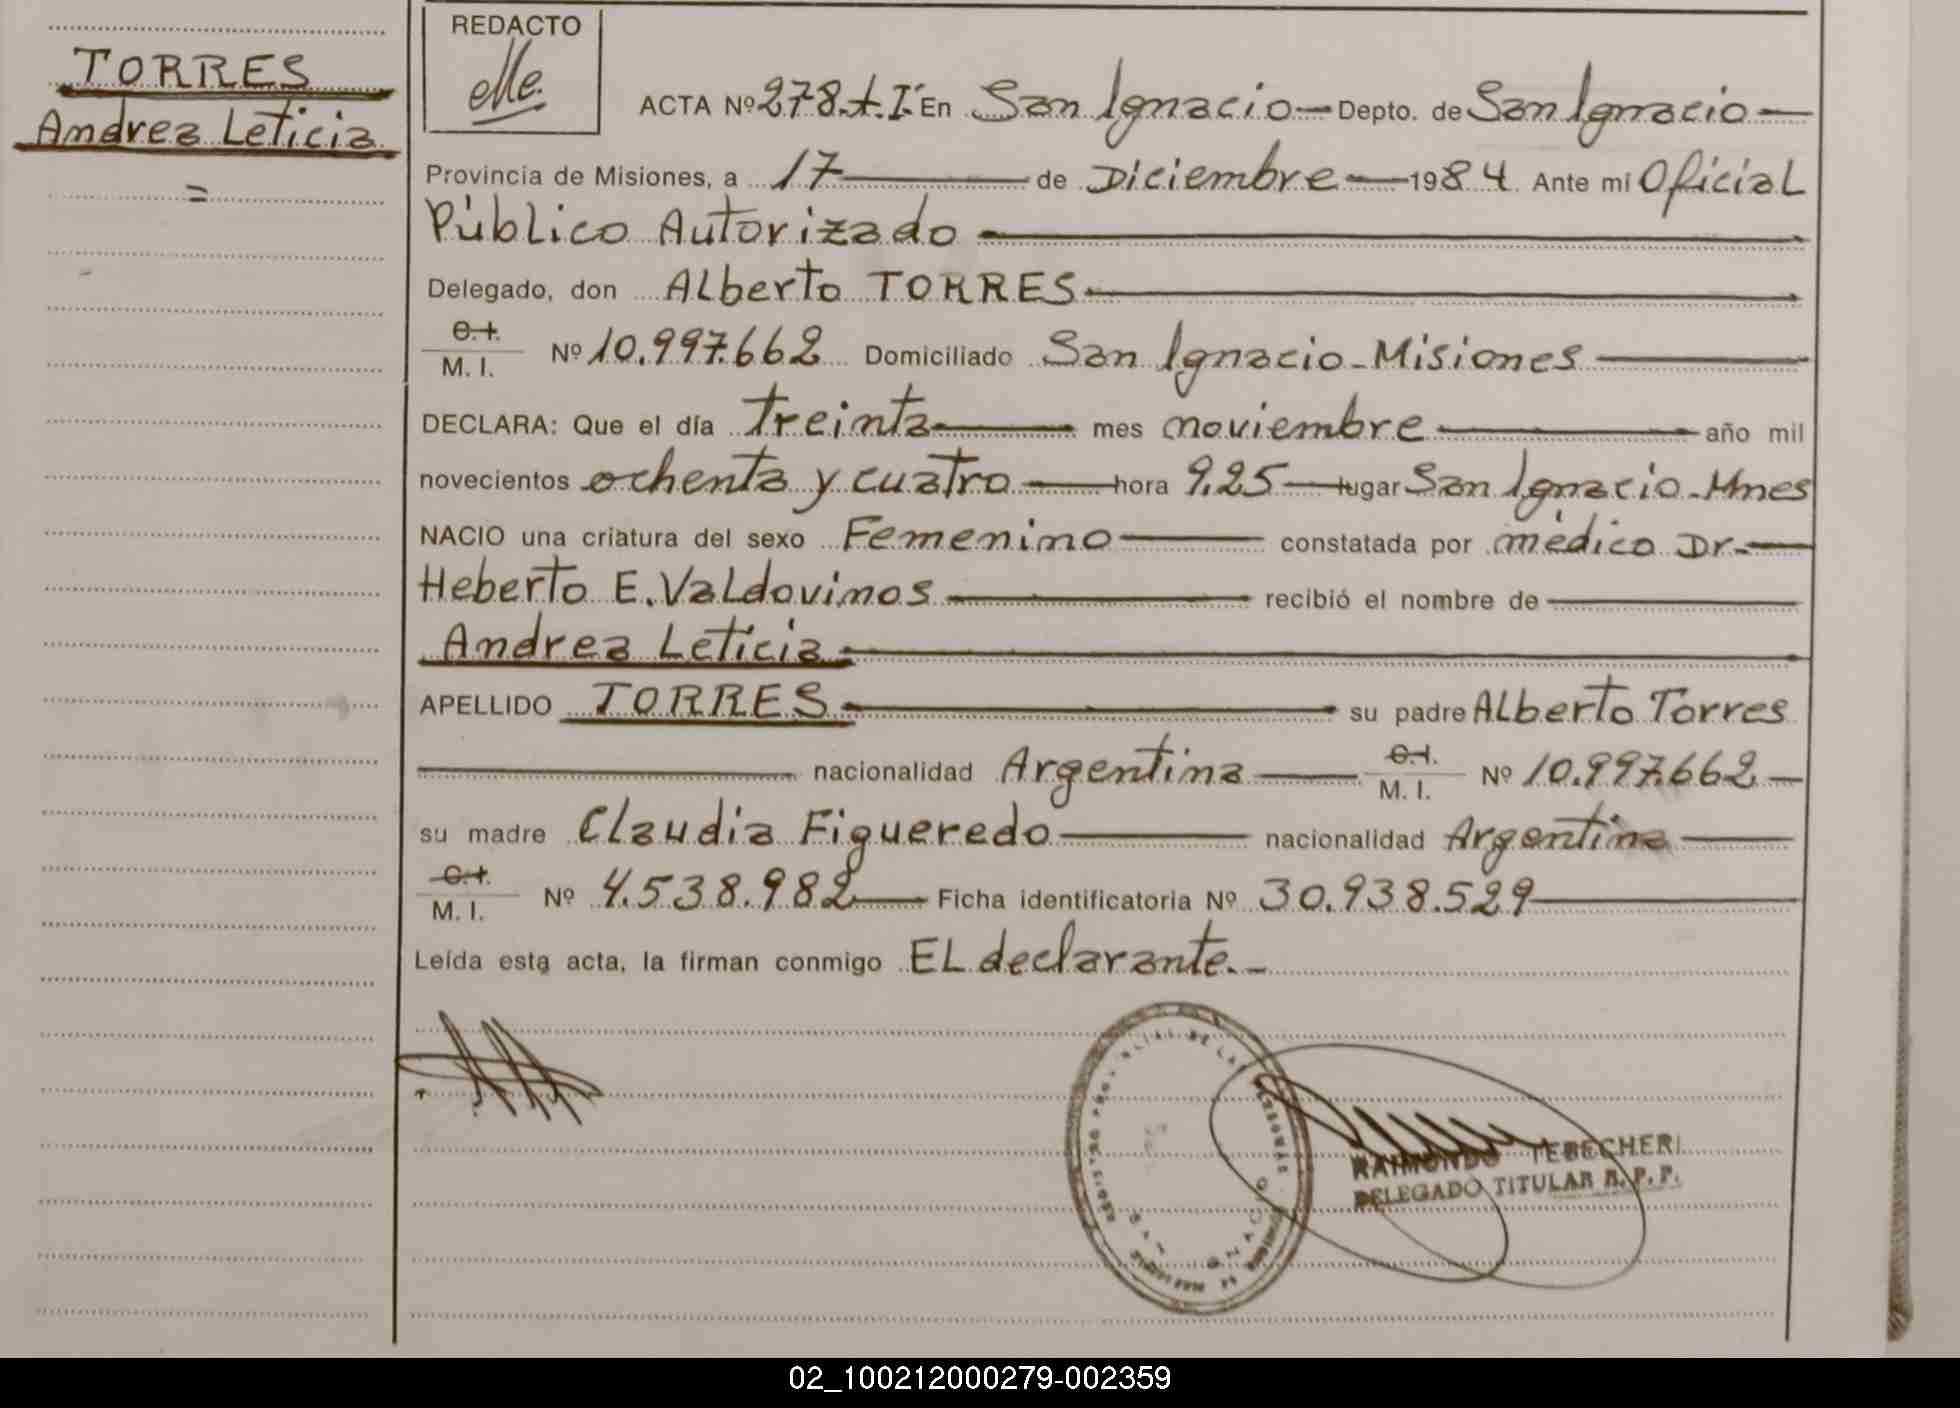 TORRES
Andrea Leticia
=
REDACTO
ACTA Nº 278.t.I. En San Ignacio — Depto. de San Ignacio —
Provincia de Misiones, a 17 — de Diciembre — 1984. Ante mi Oficial
Público Autorizado —
Delegado, don Alberto TORRES —
C.I.
M. I. Nº 10.997.662 Domiciliado San Ignacio - Misiones —
DECLARA: Que el día treinta — mes noviembre — año mil
novecientos ochenta y cuatro — hora 9,25 — lugar San Ignacio - Mnes
NACIO una criatura del sexo Femenino — constatada por médico Dr. —
Heberto E. Valdovinos — recibió el nombre de —
Andrea Leticia —
APELLIDO TORRES — su padre Alberto Torres
— nacionalidad Argentina — C.I.
M. I. Nº 10.997.662 —
su madre Claudia Figueredo — nacionalidad Argentina —
C.I.
M. I. Nº 4.538.982 — Ficha identificatoria Nº 30.938.529 —
Leída esta acta, la firman conmigo EL declarante. -
RAIMONDO TEBECHERI
DELEGADO TITULAR R. P. P.
02_100212000279-002359